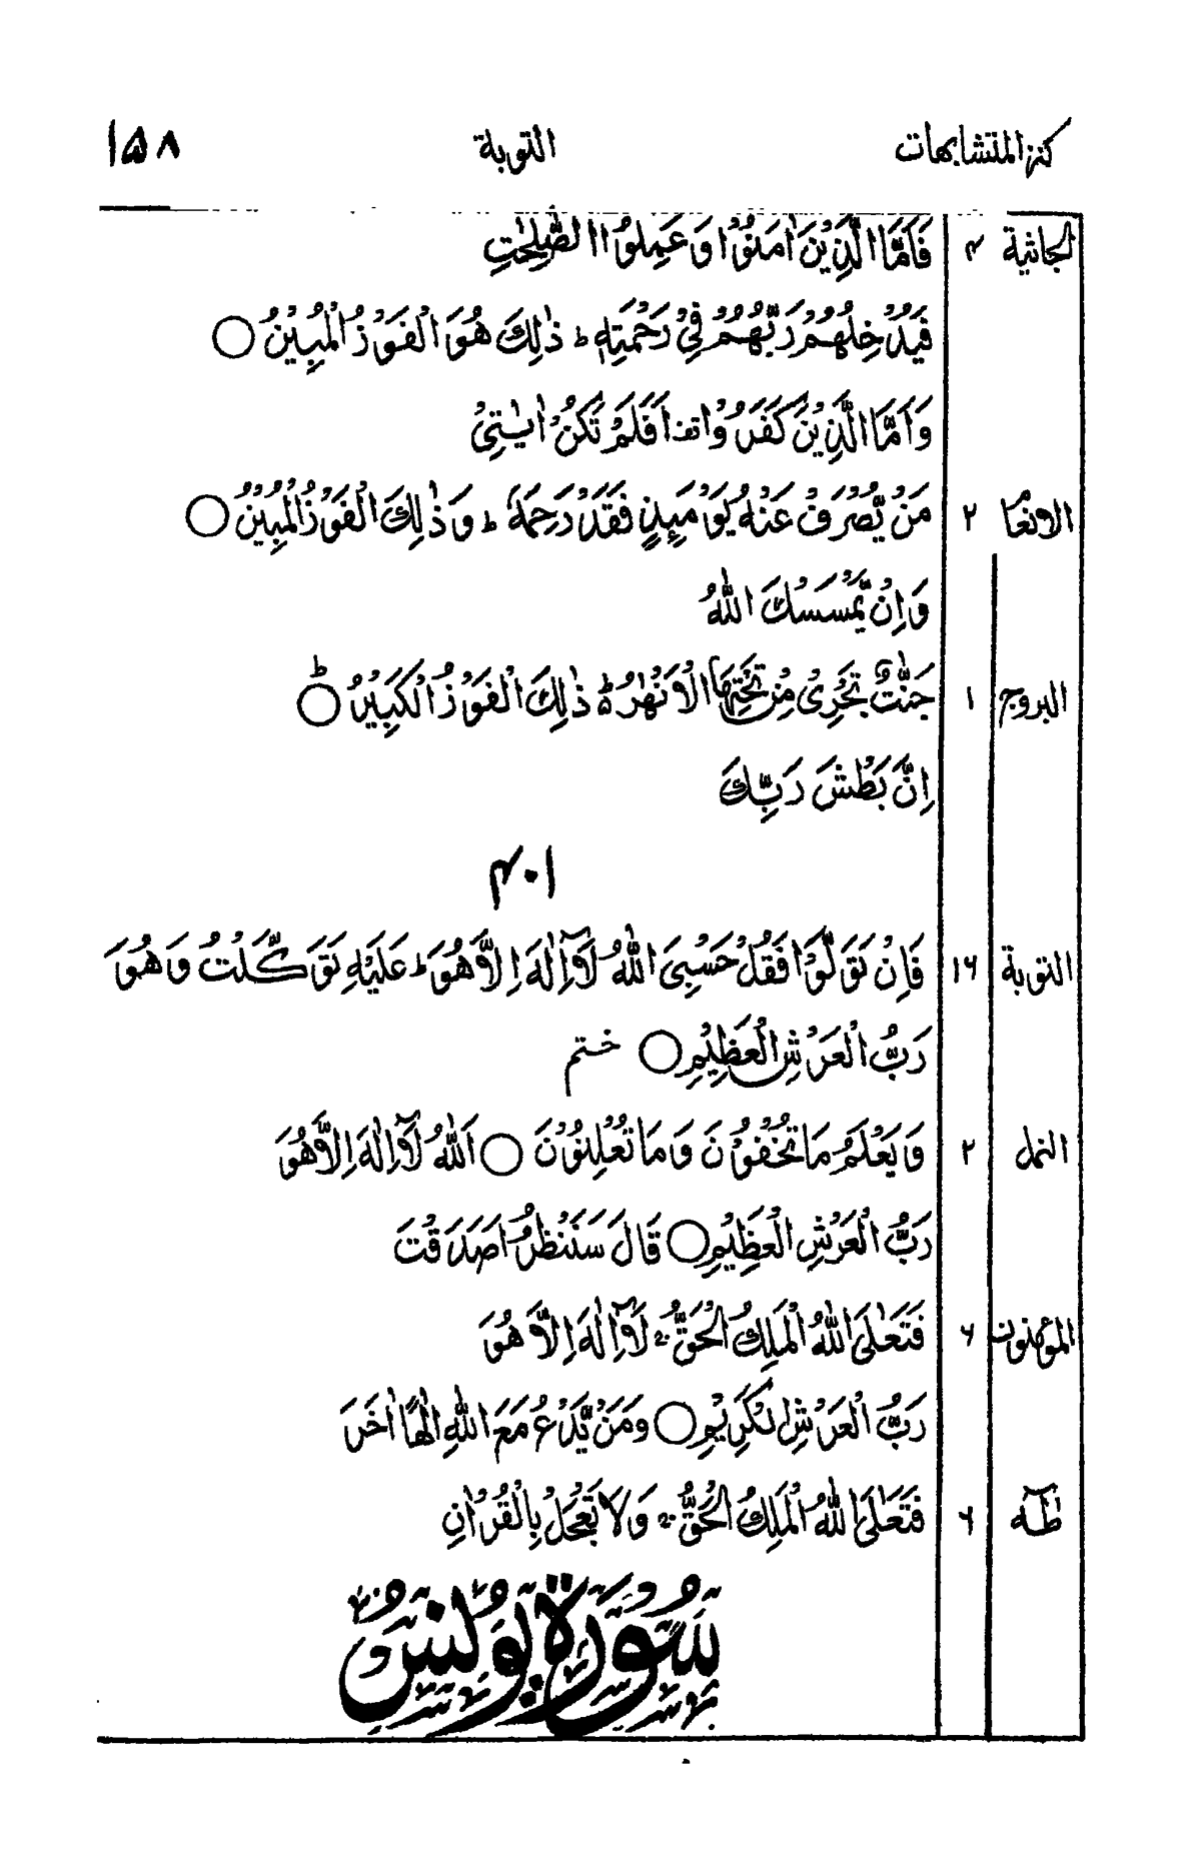 كنز المتشابهات التوبة ۱۵۸
الجاثية ۴ فَاَمَّا الَّذِيْنَ اٰمَنُوْا وَ عَمِلُوا الصّٰلِحٰتِ
فَيُدْخِلُهُمْ رَبُّهُمْ فِيْ رَحْمَتِهٖ ؕ ذٰلِكَ هُوَ الْفَوْزُ الْمُبِيْنُ ○
وَ اَمَّا الَّذِيْنَ كَفَرُوْا ۟ اَفَلَمْ تَكُنْ اٰيٰتِيْ
الانعام ۲ مَنْ يُّصْرَفْ عَنْهُ يَوْمَئِذٍ فَقَدْ رَحِمَهٗ ؕ وَ ذٰلِكَ الْفَوْزُ الْمُبِيْنُ ○
وَ اِنْ يَّمْسَسْكَ اللّٰهُ
البروج ۱ جَنّٰتٌ تَجْرِيْ مِنْ تَحْتِهَا الْاَنْهٰرُ ؕ۬ ذٰلِكَ الْفَوْزُ الْكَبِيْرُ ○ؕ
اِنَّ بَطْشَ رَبِّكَ
۴۰۱
التوبة ۱۶ فَاِنْ تَوَلَّوْا فَقُلْ حَسْبِيَ اللّٰهُ لَاۤ اِلٰهَ اِلَّا هُوَ ؕ عَلَيْهِ تَوَكَّلْتُ وَ هُوَ
رَبُّ الْعَرْشِ الْعَظِيْمِ ○ ختم
النمل ۲ وَ يَعْلَمُ مَا تُخْفُوْنَ وَ مَا تُعْلِنُوْنَ ○ اَللّٰهُ لَاۤ اِلٰهَ اِلَّا هُوَ
رَبُّ الْعَرْشِ الْعَظِيْمِ ○ قَالَ سَنَنْظُرُ اَصَدَقْتَ
المؤمنون ۶ فَتَعٰلَى اللّٰهُ الْمَلِكُ الْحَقُّ ۚ لَاۤ اِلٰهَ اِلَّا هُوَ
رَبُّ الْعَرْشِ الْكَرِيْمِ ○ وَ مَنْ يَّدْعُ مَعَ اللّٰهِ اِلٰهًا اٰخَرَ
طٰهٰ ۶ فَتَعٰلَى اللّٰهُ الْمَلِكُ الْحَقُّ ۚ وَ لَا تَعْجَلْ بِالْقُرْاٰنِ
سُوْرَةُ يُوْنُسَ